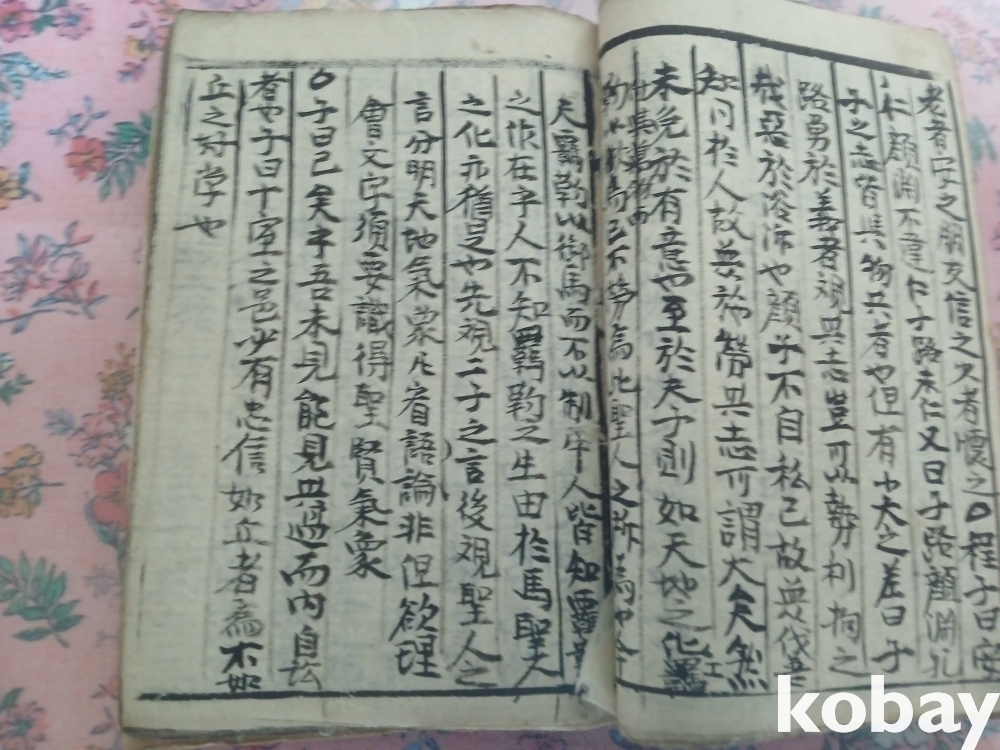 老者安之朋友信之少者懷之〇程子曰安
仁顔淵不違仁子路求仁又曰子路顔淵孔
子之志皆與物共者也但有小大之差曰子
路勇於義者觀其志豈可以勢利拘之
哉亞於浴沂也顔子不自私己故無伐善
知同於人故無施勞其志可謂大矣然
未免於有意也至於夫子則如天地之化工
而己不勞焉此聖人之所爲也今
夫羈勒以御馬而不以制牛人皆知羈
之作在乎人不知羈勒之生由於馬聖人
之化亦猶是也先觀二子之言後觀聖人之
言分明天地氣象凡看語論非但欲理
會文字須要識得聖賢氣象
〇子曰已矣乎吾未見能見其過而內自訟
者也子曰十室之邑必有忠信如丘者焉不如
丘之好学也
kobay